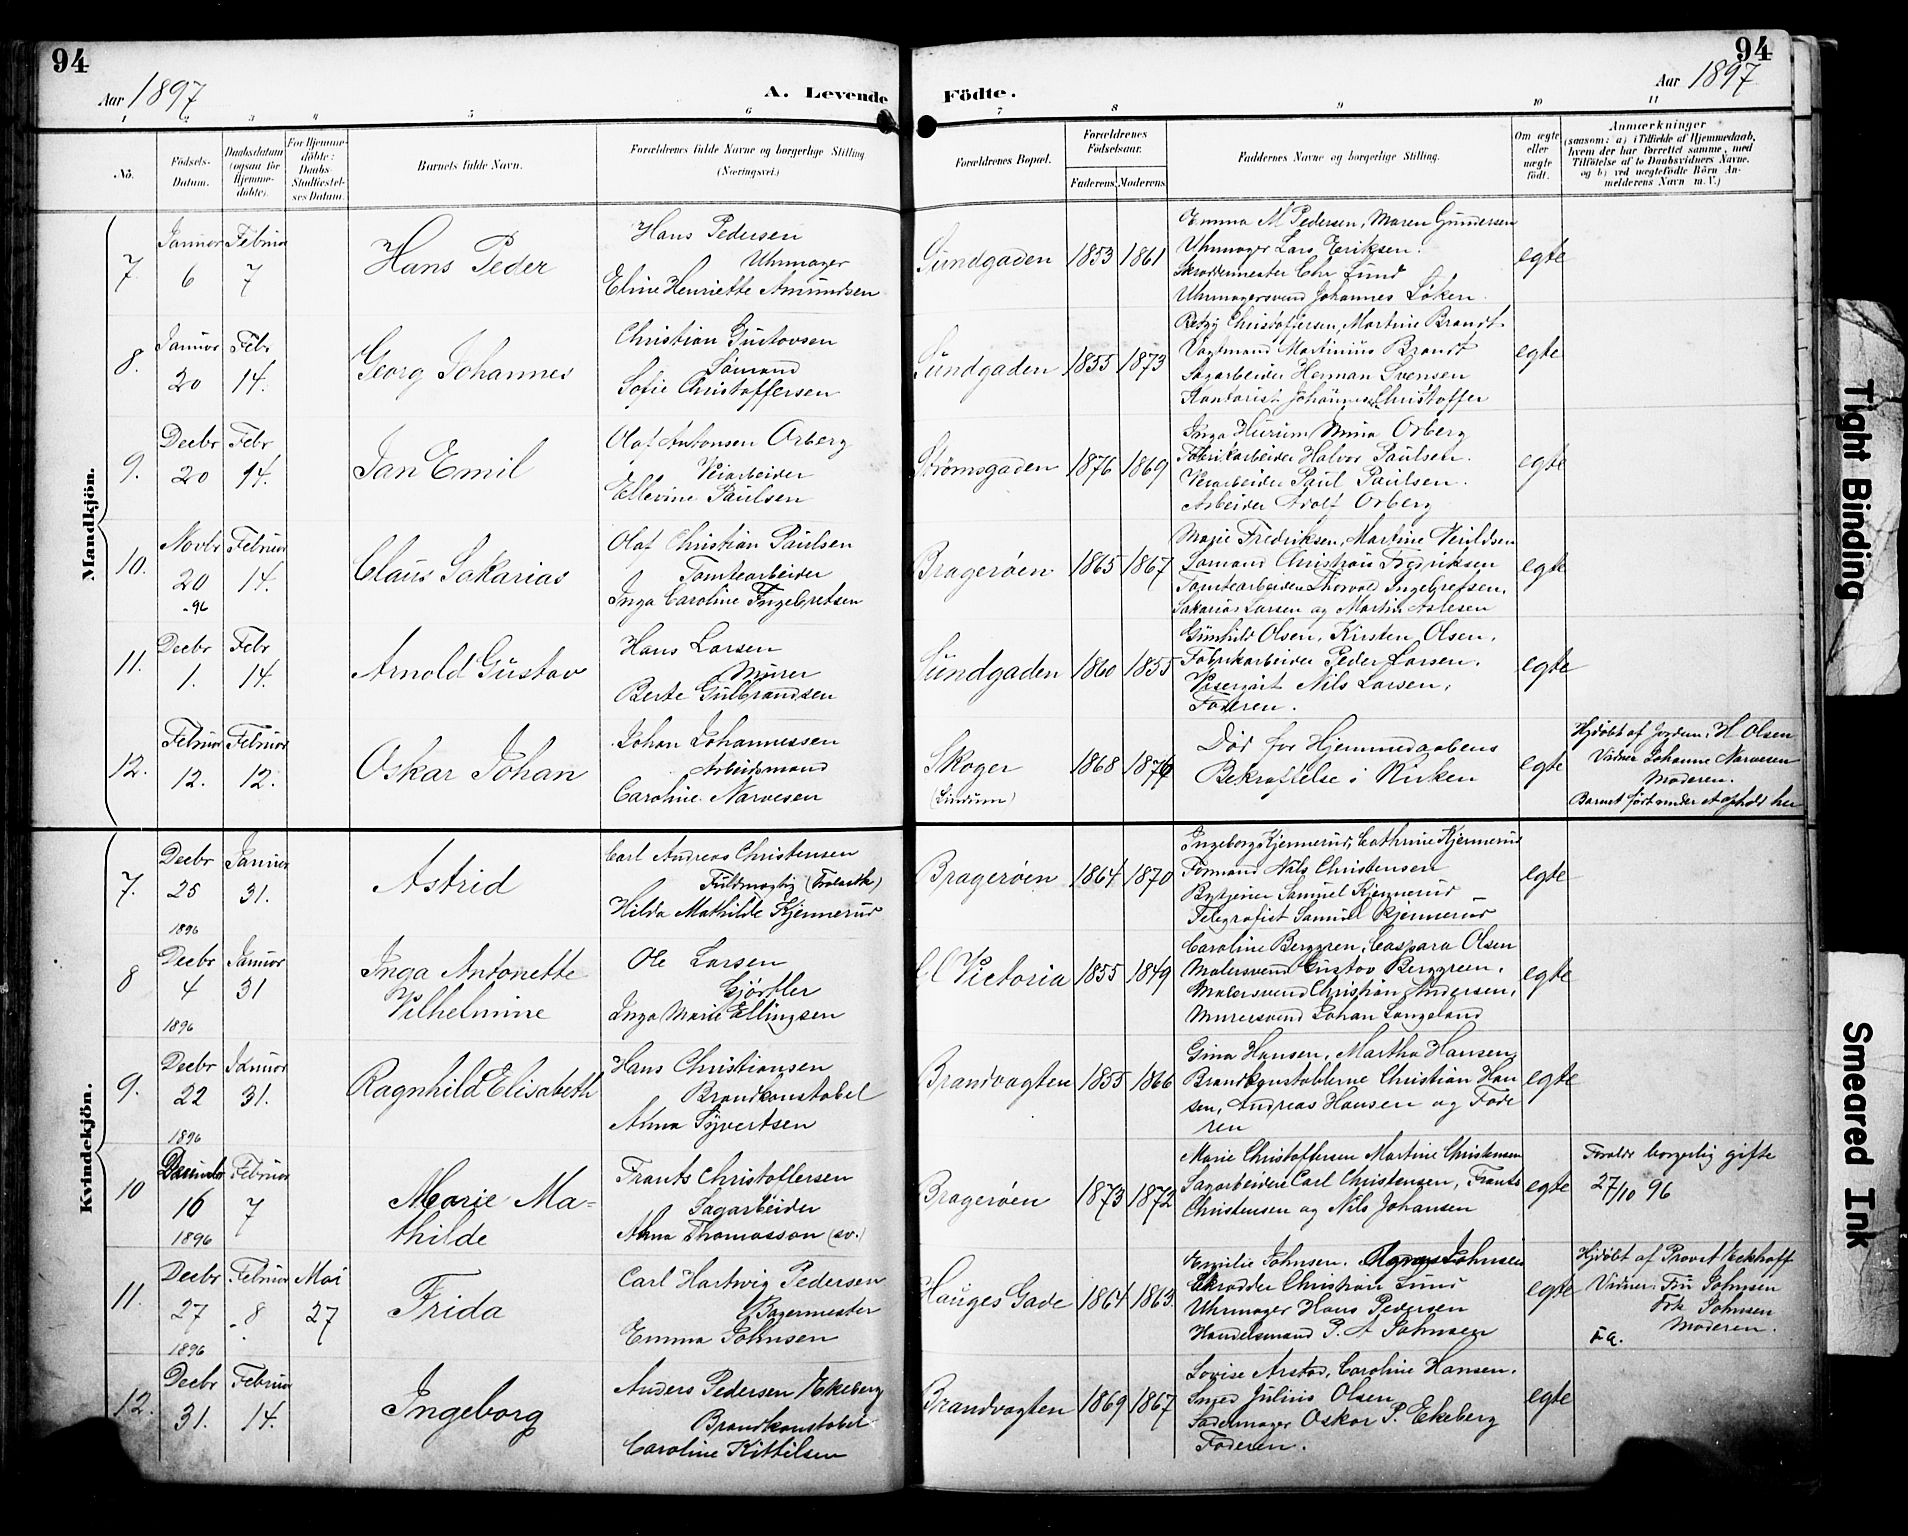 94
94
Aar 1897
Aar 1897
A. Levende Födte.
1 2 3 4 5 6 7 8 9 10 11
No.
Födsels-Datum.
Daabsdatum (ogsaa för Hjemmedöbte).
For Hjemmedöbte: Daabs-Stadfæstelses Datum.
Barnets fulde Navn.
Forældrenes fulde Navne og borgerlige Stilling (Næringsvei.)
Forældrenes Bopæl.
Forældrenes Födselsaar.
Faderens.
Moderens.
Faddernes Navne og borgerlige Stilling.
Om ægte eller uægte födt.
Anmærkninger
(saasom: a) i Tilfælde af Hjemmedaab, hvem der har forrettet samme, med Tilföielse af to Daabsvidners Navne, og b) ved uægtefödte Börn Anmelderens Navn m. V.)
Mandkjön.
7. Januar 6 Februar 7
Hans Peder
Hans Pedersen
Uhrmager
Eline Henriette Amundsen
Sundgaden 1853 1861
Emma M Pedersen, Maren Gundersen
Uhrmager Lars Eriksen.
Skræddermester Chr Lund
Uhrmagersvend Johannes Løken.
egte
8. Januar 20 Febr 14.
Georg Johannes
Christian Gustavsen
Sømand
Sofie Christoffersen
Sundgaden 1855 1873
Betzy Christoffersen, Martine Brandt
Vagtmand Martinius Brandt
Sagarbeider Herman Svensen
Kontorist Johannes Christoffer
egte
9. Decbr 20 Febr 14.
Jan Emil
Olaf Antonsen Orberg
Veiarbeider
Ellevine Paulsen
Strømsgaden 1876 1869
Inga Hurum Mina Orberg
Fabrikarbeider Halvor Paulsen.
Veiarbeider Paul Paulsen.
Arbeider Adolf Orberg
egte
10. Novbr 20 -96 Februar 14.
Claus Sakarias
Olaf Christian Paulsen
Tomtearbeider
Inga Caroline Ingebretsen
Bragerøen 1865 1867
Marie Fredriksen, Martine
Sømand Christian Fredriksen
Tomtearbeider Thorvald Ingebretsen,
Sakarias Larsen og Martin Aslesen
egte
11. Decbr 1. Febr 14.
Arnold Gustav
Hans Larsen
Murer
Berte Gulbrandsen
Sundgaden 1860 1855
Gunhild Olsen, Kirsten Olsen,
Fabrikarbeider Peder Larsen,
Visergut Nils Larsen,
Faderen.
egte
12. Februar 12. Februar 12.
Oskar Johan
Johan Johannessen
Arbeidsmand
Caroline Narvesen
Skoger
(Lindum)
1868 1876
Død før Hjemmedaabens
Bekræftelse i Kirken
egte
Hjdøbt af Jordm. H. Olsen
Vidner Johanne Narvesen
Moderen.
Barnet født under et ophold her
Kvindekjön.
7. Decbr 25 1896 Januar 31.
Astrid
Carl Andreas Christensen
Fuldmægtig (Trælasth)
Hilda Mathilde Kjennerud
Bragerøen 1864 1870
Ingeborg Kjennerud, Cathrine Kjennerud
Formand Nils Christensen
Bytjener Samuel Kjennerud
Telegrafist Samuel Kjennerud
egte
8 Decbr 4 1896 Januar 31
Inga Antonette
Vilhelmine
Ole Larsen
Gjørtler
Inga Marie Ellingsen
Gl Victoria 1855 1849
Caroline Berggren, Caspara Olsen
Malersvend Gustav Berggreen,
Malersvend Christian Andersen,
Murersvend Johan Langeland
egte
9. Decbr 22 1896 Januar 31.
Ragnhild Elisabeth
Hans Christiansen
Brandkonstabel
Anna Syvertsen
Brandvagten 1855 1866
Gina Hansen, Martha Hansen,
Brandkonstablerne Christian Han
sen, Andreas Hansen og Fade
ren
egte
10 16 1896 Februar 7
Marie Ma-
thilde
Frants Christoffersen
Sagarbeider
Anna Thomasson (sv.)
Bragerøen 1873 1872
Marie Christoffersen Martine Christensen
Sagarbeidere Carl Christensen, Frants
Christensen og Nils Johansen
egte
Forældr borgerlig gifte
27/10 96
11. Decbr 27 1896 Februar 8 Mai 27
Frida
Carl Hartvig Pedersen
Bagermester
Emma Johnsen
Hauges Gade 1864 1863.
Emilie Johnsen. Agnes Johnsen
Skrædder Christian Lund
Uhrmager Hans Pedersen
Handelsmand P. A Johnsen
egte
Hjdøbt af Provst Eckhoff
Vidner Fru Johnsen
Frk Johnsen
Moderen.
12. Decbr 31. Februar 14.
Ingeborg
Anders Pedersen Ekeberg
Brandkonstabel
Caroline Kittilsen
Brandvagten 1869 1867
Lovise Arstad, Caroline Hansen.
Smed Julius Olsen
Sadelmager Oskar P. Ekeberg
Faderen.
egte
Tight Binding
Smeared Ink